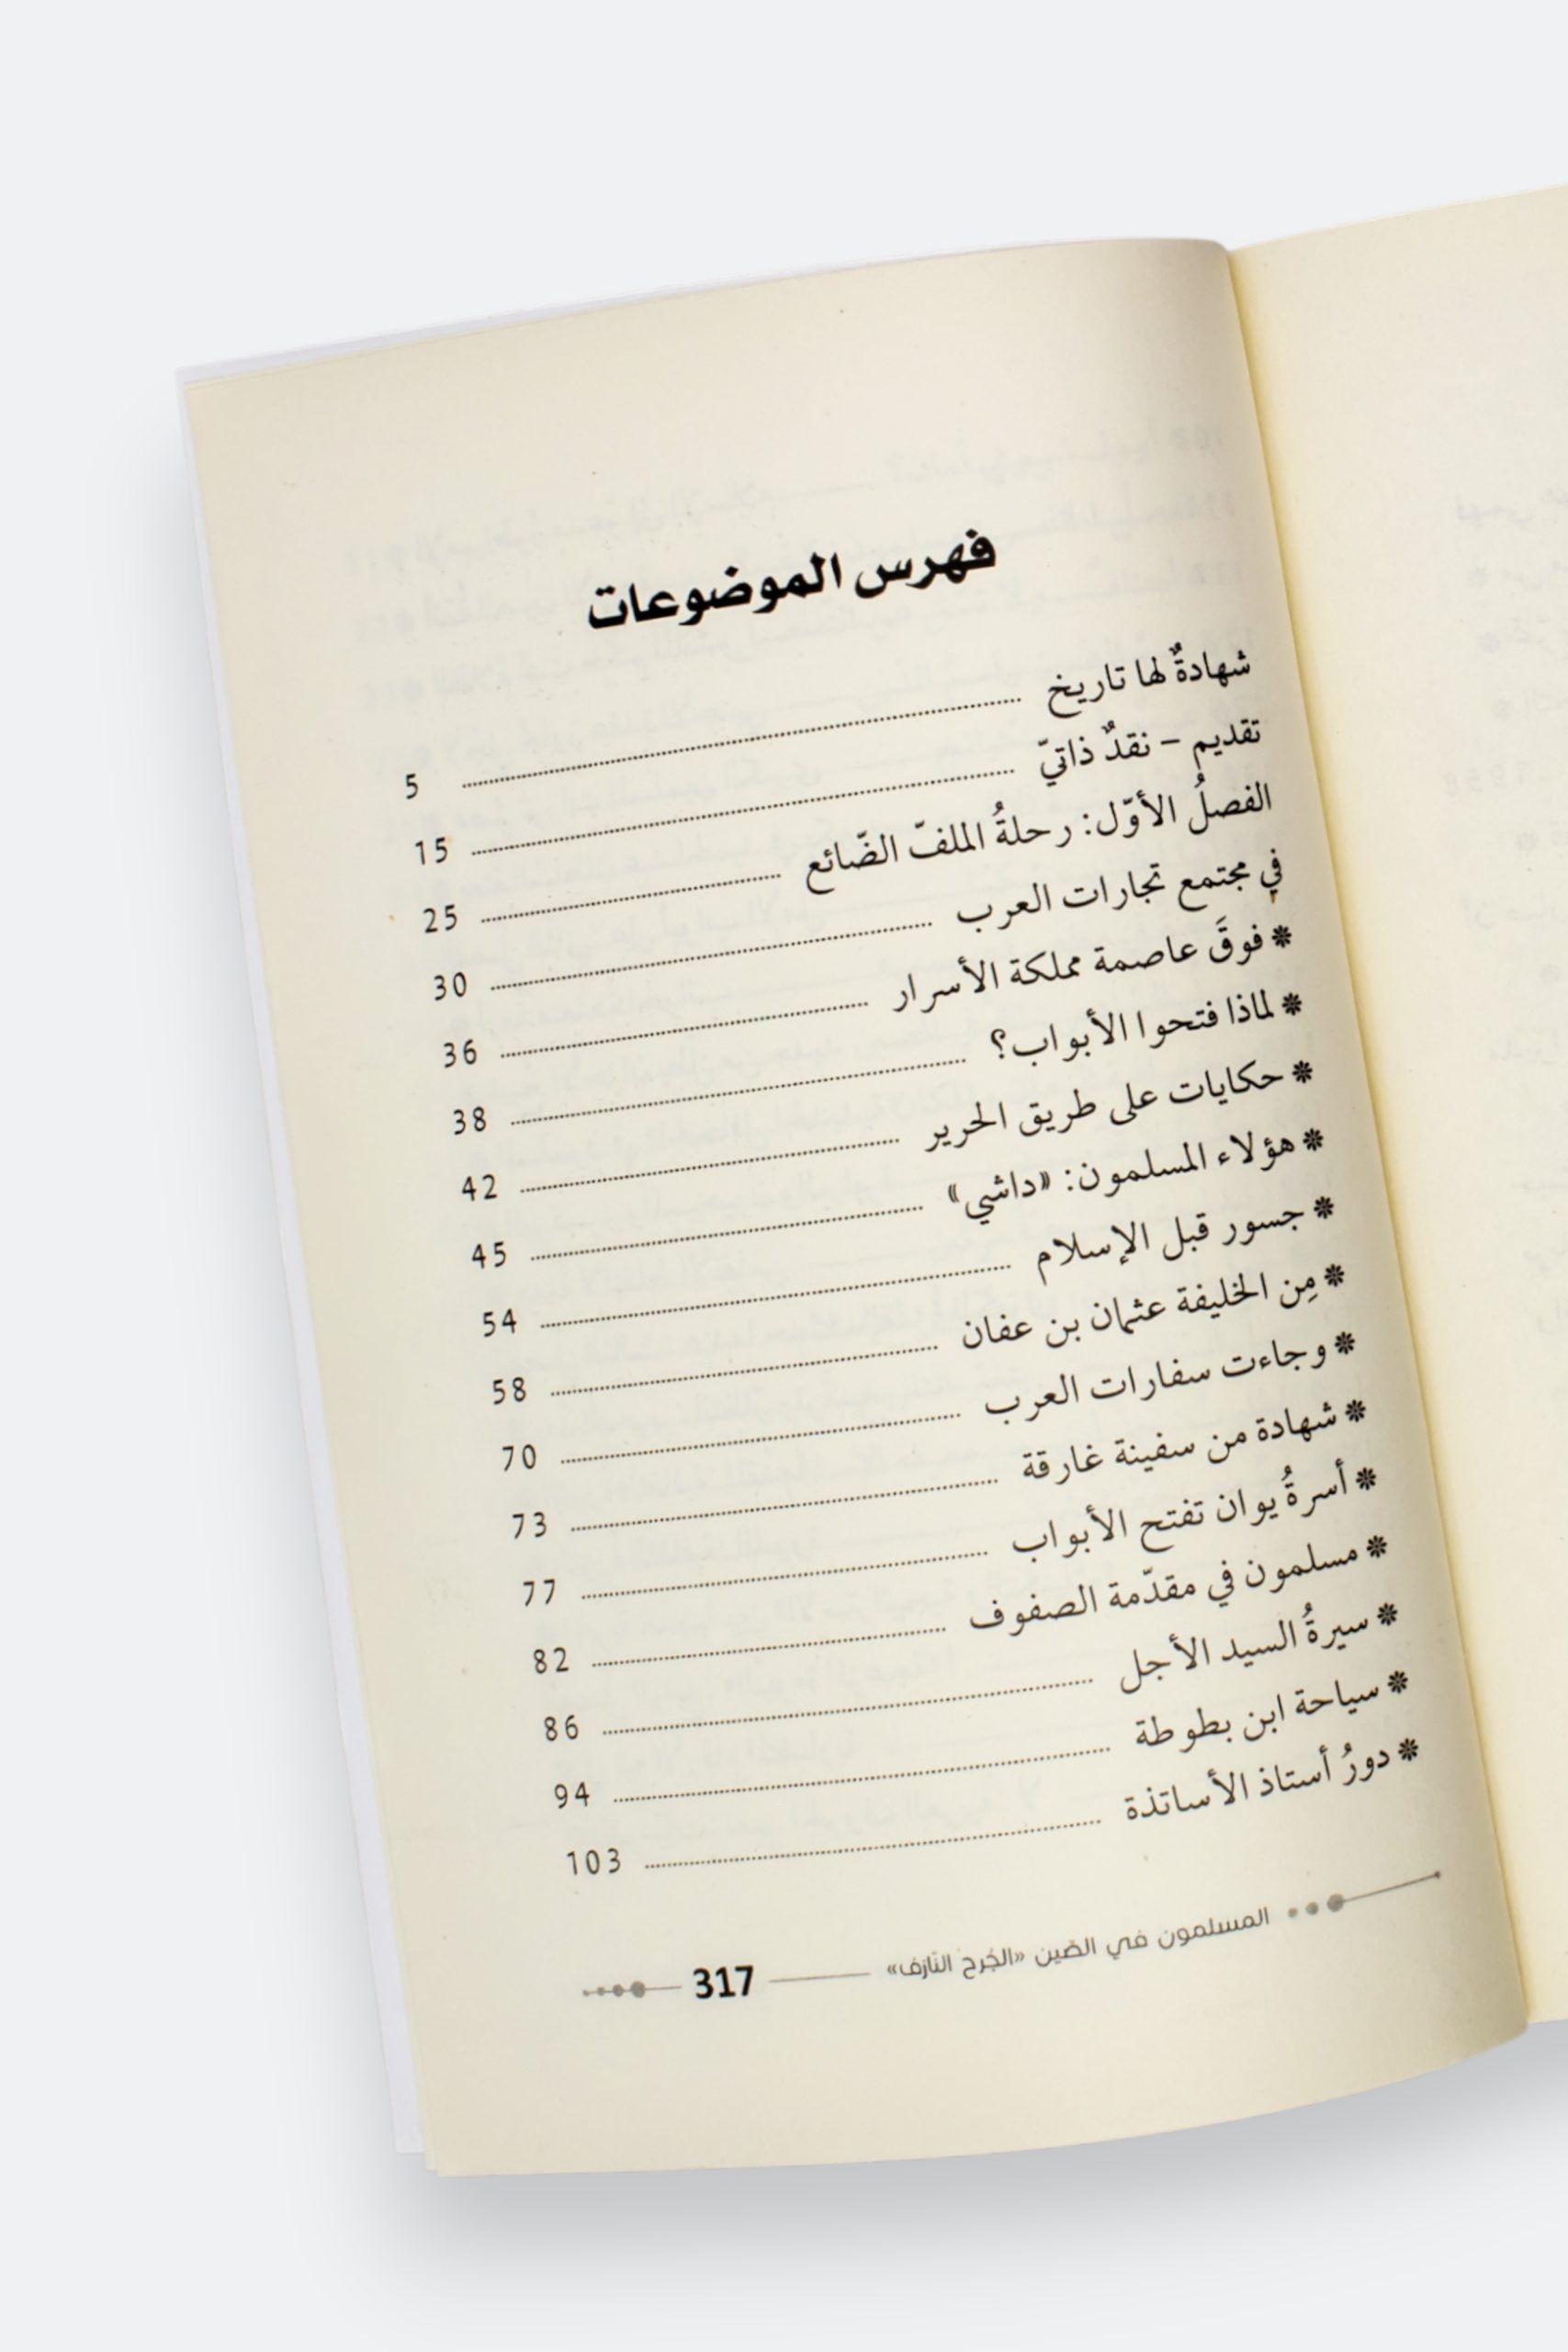 فهرس الموضوعات
شهادةٌ لها تاريخ ........ 5
تقديم - نقدٌ ذاتيّ ........ 15
الفصلُ الأوّل: رحلةُ الملفّ الضّائع ........ 25
في مجتمع تجارات العرب ........ 30
* فوقَ عاصمة مملكة الأسرار ........ 36
* لماذا فتحوا الأبواب؟ ........ 38
* حكايات على طريق الحرير ........ 42
* هؤلاء المسلمون: «داشي» ........ 45
* جسور قبل الإسلام ........ 54
* مِن الخليفة عثمان بن عفان ........ 58
* وجاءت سفارات العرب ........ 70
* شهادة من سفينة غارقة ........ 73
* أسرةُ يوان تفتح الأبواب ........ 77
* مسلمون في مقدّمة الصفوف ........ 82
* سيرةُ السيد الأجل ........ 86
* سياحة ابن بطوطة ........ 94
* دورُ أستاذ الأساتذة ........ 103
المسلمون في الصّين «الجُرح النّازف» 317